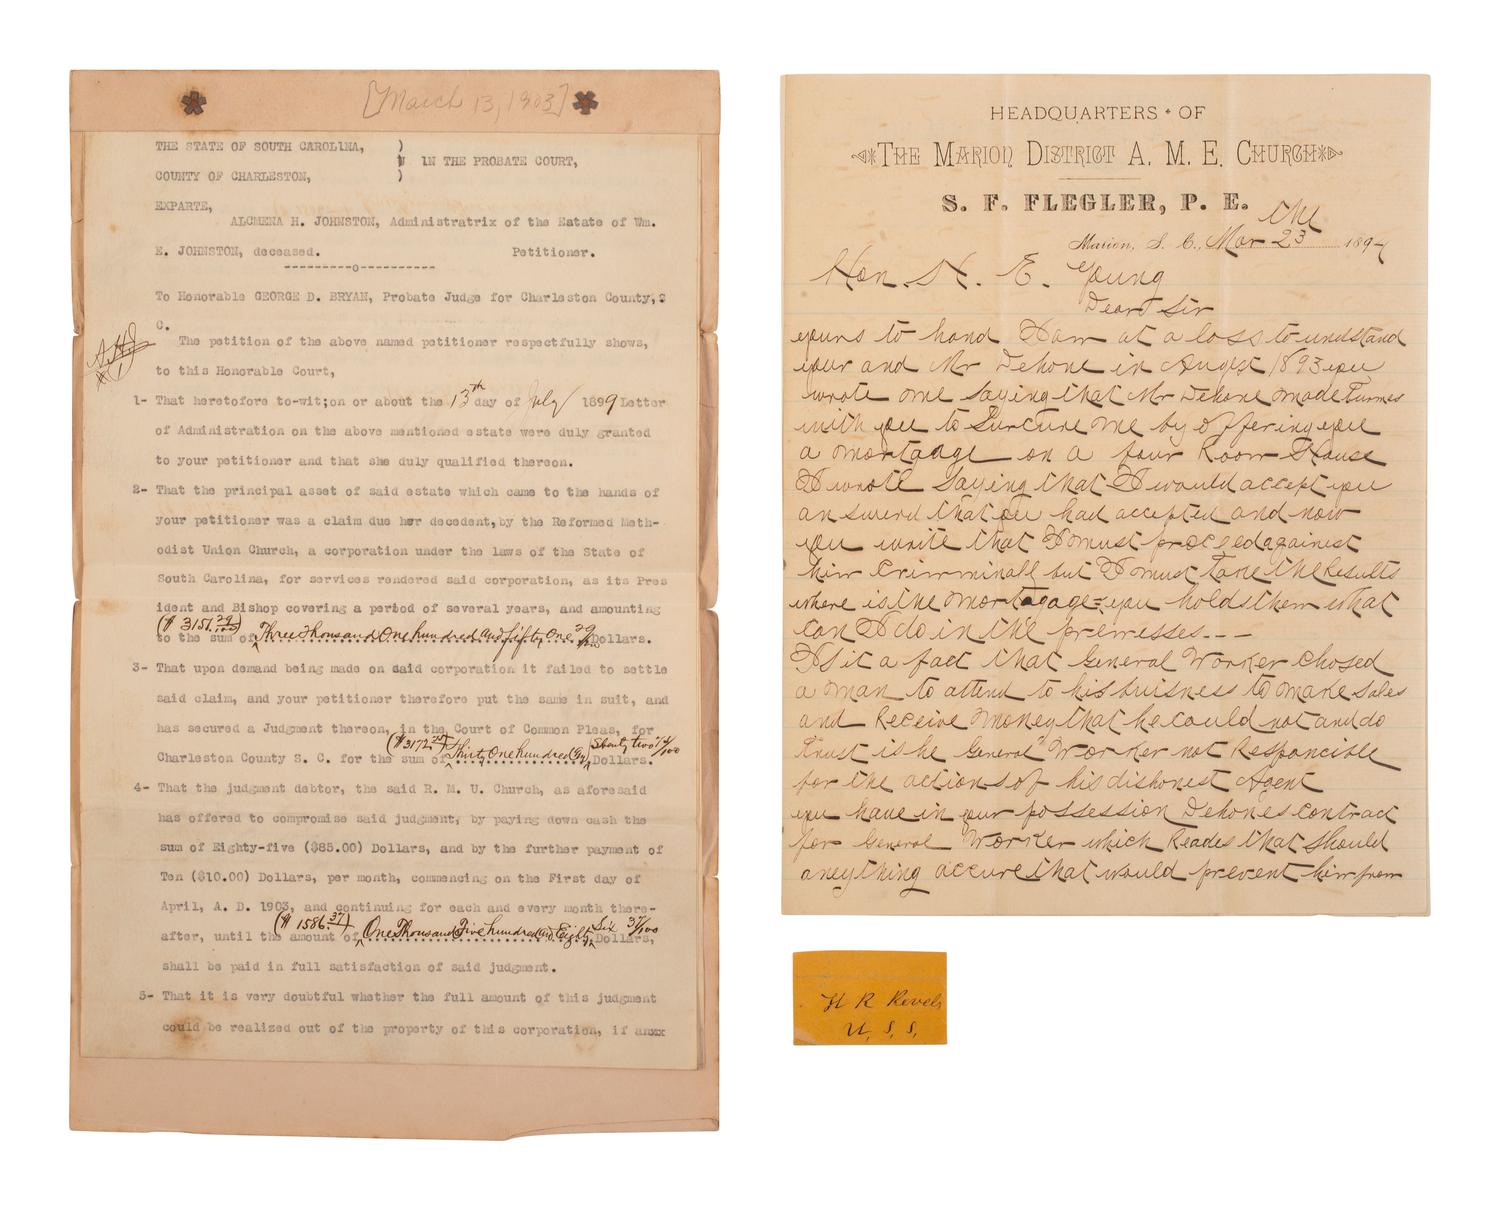 [March 13, 1903]
THE STATE OF SOUTH CAROLINA, )
) IN THE PROBATE COURT,
COUNTY OF CHARLESTON, )
EXPARTE,
ALCMENA H. JOHNSTON, Administratrix of the Estate of Wm.
E. JOHNSTON, deceased. Petitioner.
---------o----------
To Honorable GEORGE D. BRYAN, Probate Judge for Charleston County, S
C.
The petition of the above named petitioner respectfully shows,
to this Honorable Court,
1- That heretofore to-wit;on or about the 13th day of July 1899 Letter
of Administration on the above mentioned estate were duly granted
to your petitioner and that she duly qualified thereon.
2- That the principal asset of said estate which came to the hands of
your petitioner was a claim due her decedent,by the Reformed Meth-
odist Union Church, a corporation under the laws of the State of
South Carolina, for services rendered said corporation, as its Pres
ident and Bishop covering a period of several years, and amounting
($ 3151.29/100)
to the sum of Three Thousand One hundred and fifty One 29/100 Dollars.
3- That upon demand being made on said corporation it failed to settle
said claim, and your petitioner therefore put the same in suit, and
has secured a Judgment thereon, in the Court of Common Pleas, for
Charleston County S. C. for the sum of ($3172.) Thirty One hundred Dollars.
4- That the judgment debtor, the said R. M. U. Church, as aforesaid
has offered to compromise said judgment, by paying down cash the
sum of Eighty-five ($85.00) Dollars, and by the further payment of
Ten ($10.00) Dollars, per month, commencing on the First day of
April, A. D. 1903, and continuing for each and every month there-
($ 1586.37)
after, until the amount of One Thousand Five hundred and Eighty Six 37/100 Dollars,
shall be paid in full satisfaction of said judgment.
5- That it is very doubtful whether the full amount of this judgment
could be realized out of the property of this corporation, if anxx
HEADQUARTERS OF
THE MARION DISTRICT A. M. E. CHURCH
S. F. FLEGLER, P. E.
Marion, S. C., Mar 23 the 1894
Hon. H. E. Young
Dear Sir
yours to hand I am at a loss to undstand
your and Mr Dehone in Augest 1893 you
wrote me saying that Mr Dehone made turmes
with you to Surcure me by offering you
a mortgage on a four Room House
I wrote Saying that I would accept you
answerd that you had accepted and now
you write that I must proceed againest
him Crimminall but I must take the Results
where is the mortgage you holds them what
can I do in the premesses---
Is it a fact that General Worker chosed
a man to attend to his buisness to make sales
and Receive money that he could not and do
trust is he General Worker not Responcible
for the actions of his dishonest Agent
you have in your possession Dehones contract
for General Worker which Reades that should
aney thing accure that would prevent him from
H R Revels
U. S. S.